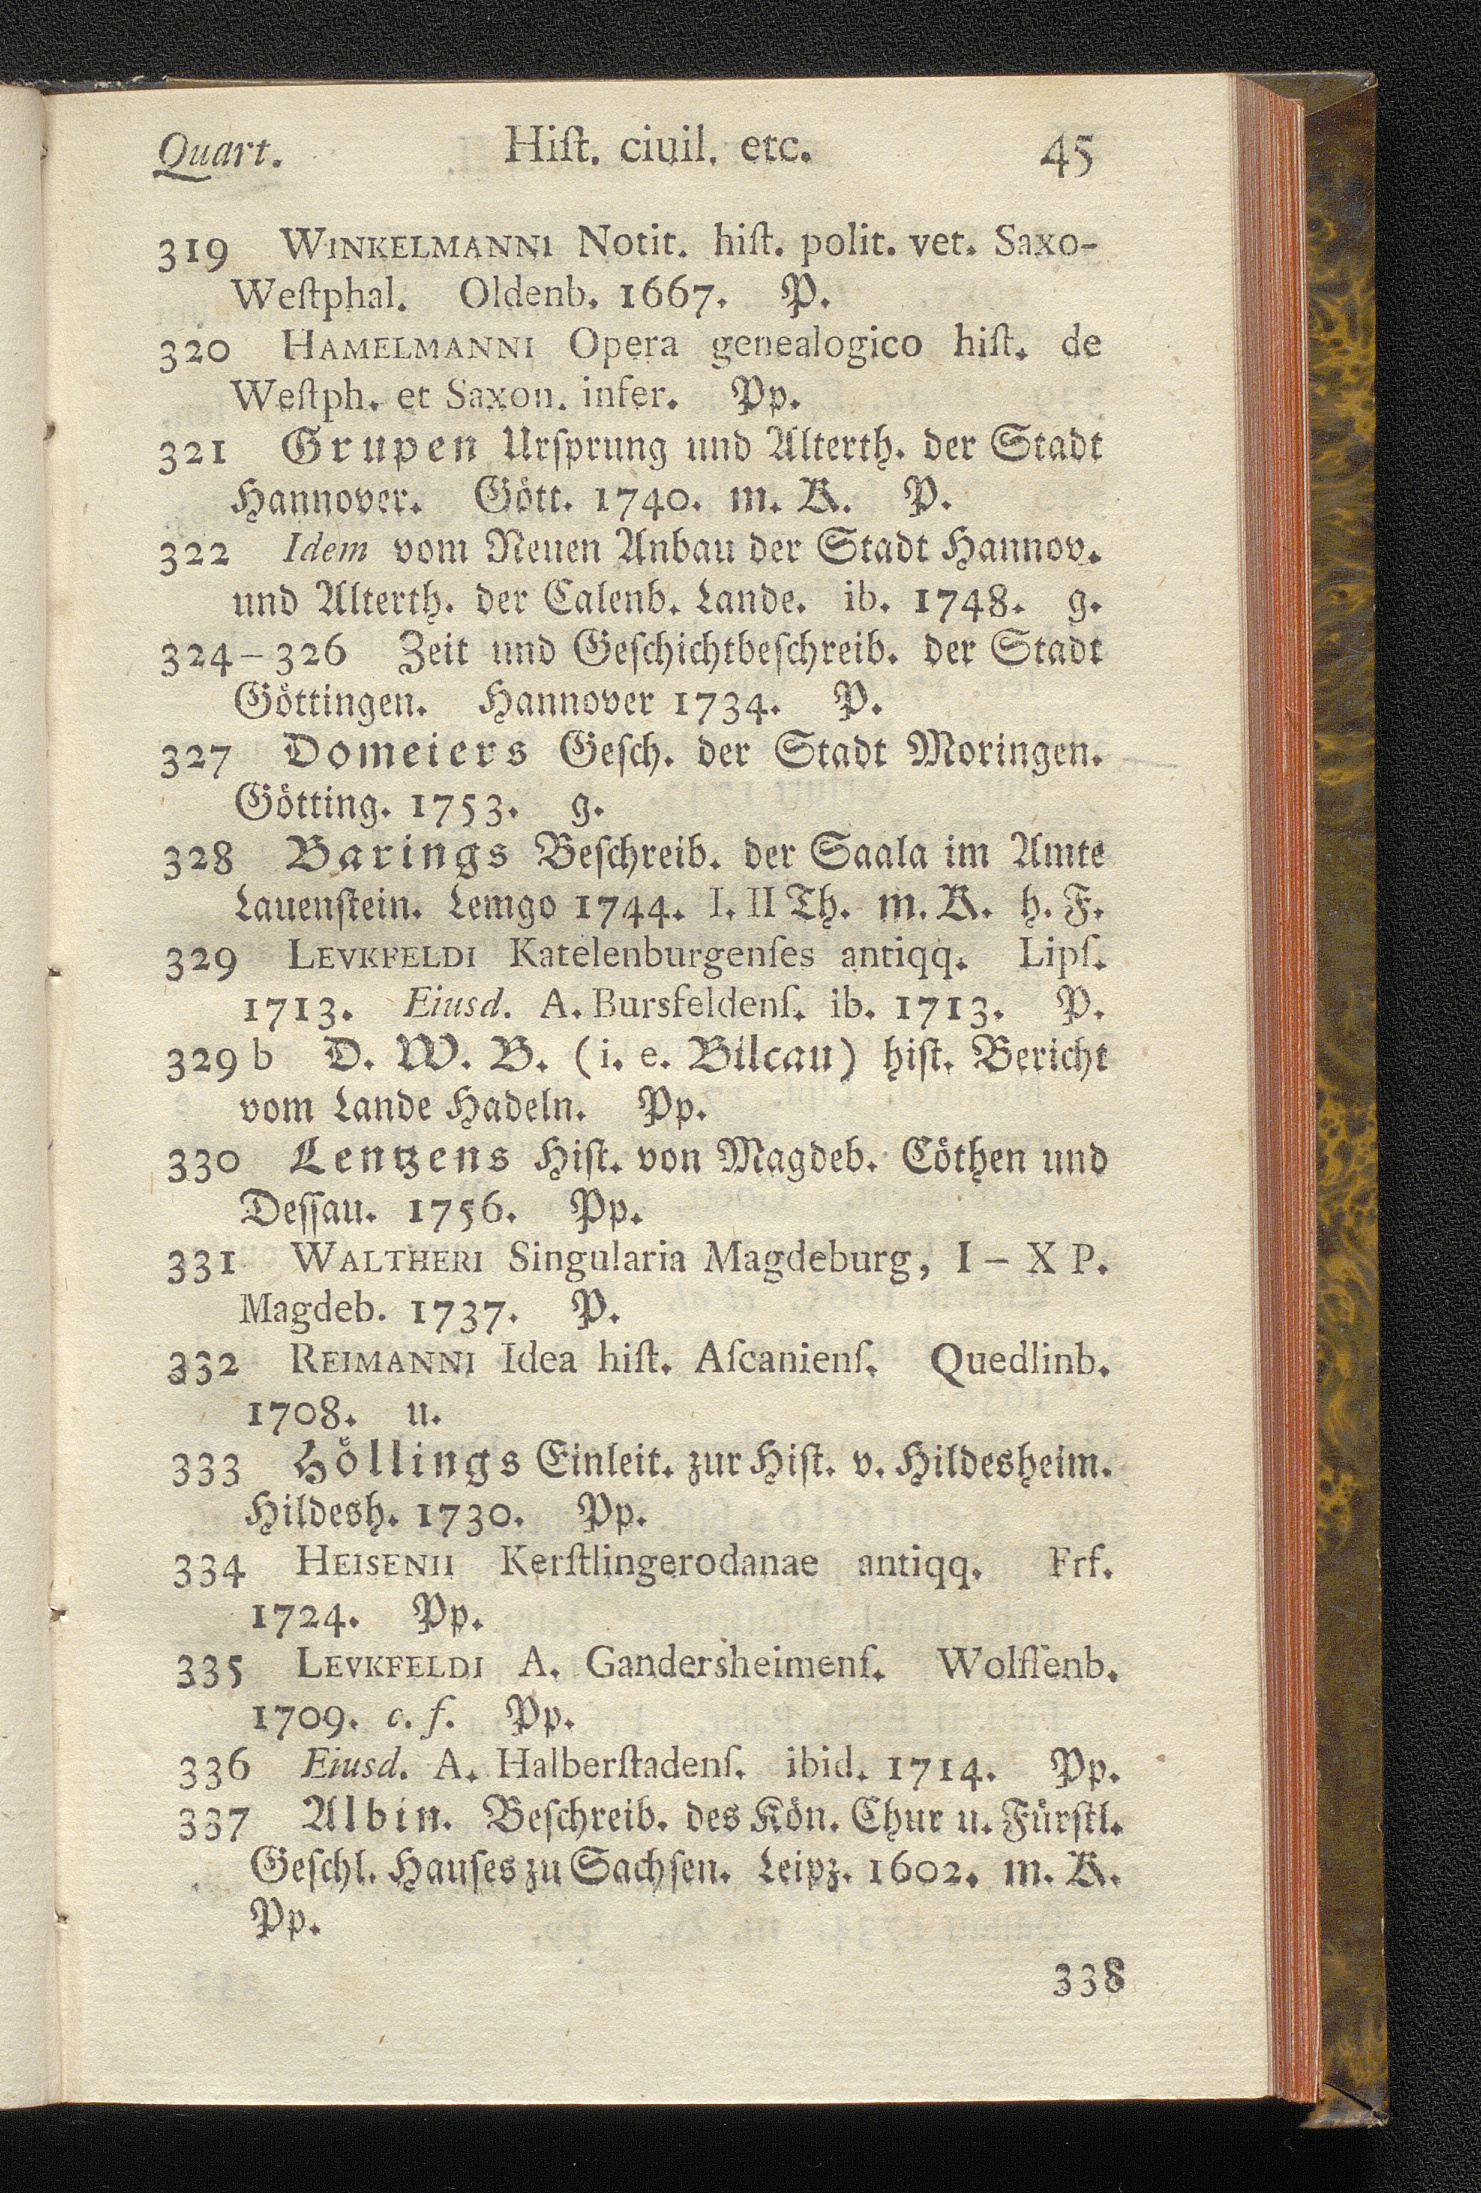 Quart. Hiſt. ciuil. etc. 45
319 WINKELMANNI Notit. hiſt. polit. vet. Saxo-
Weſtphal. Oldenb. 1667. P.
320 HAMELMANNI Opera genealogico hiſt. de
Weſtph. et Saxon. infer. Pp.
321 Grupen Urſprung und Alterth. der Stadt
Hannover. Gött. 1740. m. K. P.
322 Idem vom Neuen Anbau der Stadt Hannov.
und Alterth. der Calenb. Lande. ib. 1748. g.
324–326 Zeit und Geſchichtbeſchreib. der Stadt
Göttingen. Hannover 1734. P.
327 Domeiers Geſch. der Stadt Moringen.
Götting. 1753. g.
328 Barings Beſchreib. der Saala im Amte
Lauenſtein. Lemgo 1744. I. II Th. m. K. h. F.
329 LEVKFELDI Katelenburgenſes antiqq. Lipſ.
1713. Eiusd. A. Bursfeldenſ. ib. 1713. P.
329 b D. W. B. (i. e. Bilcau) hiſt. Bericht
vom Lande Hadeln. Pp.
330 Lentzens Hiſt. von Magdeb. Cöthen und
Deſſau. 1756. Pp.
331 WALTHERI Singularia Magdeburg, I – X P.
Magdeb. 1737. P.
332 REIMANNI Idea hiſt. Aſcanienſ. Quedlinb.
1708. u.
333 Höllings Einleit. zur Hiſt. v. Hildesheim.
Hildesh. 1730. Pp.
334 HEISENII Kerſtlingerodanae antiqq. Frf.
1724. Pp.
335 LEVKFELDI A. Gandersheimenſ. Wolffenb.
1709. c. f. Pp.
336 Eiusd. A. Halberſtadenſ. ibid. 1714. Pp.
337 Albin. Beſchreib. des Kön. Chur u. Fürſtl.
Geſchl. Hauſes zu Sachſen. Leipz. 1602. m. K.
Pp.
338